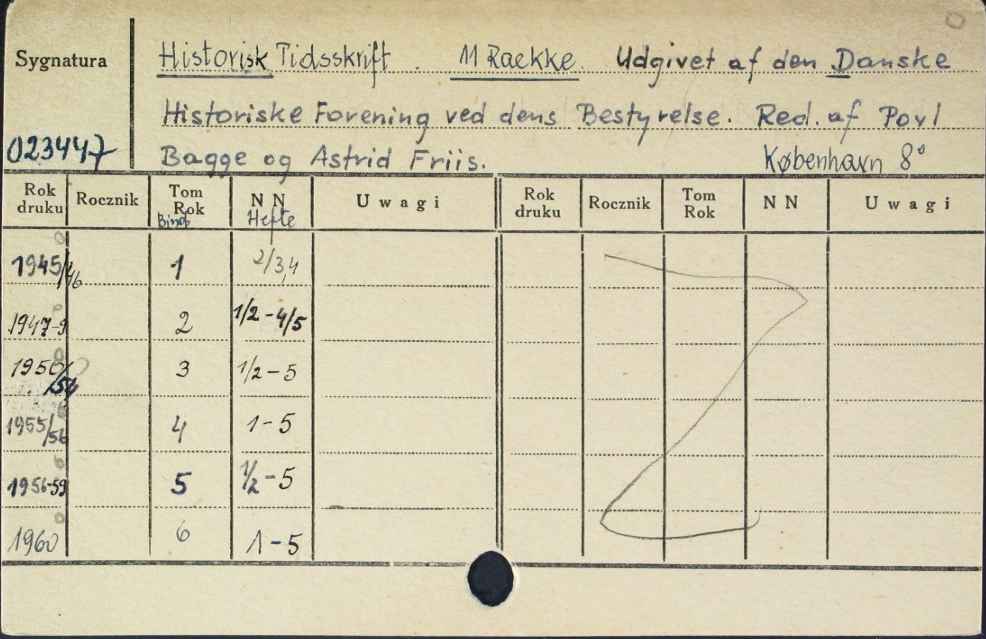 Sygnatura
Historisk Tidsskrift. 11 Raekke. Udgivet af den Danske
Historiske Forening ved dens Bestyrelse. Red. af Povl
023447
Bagge og Astrid Friis. København 8°
Rok druku Rocznik Tom Rok Bind NN Hefte Uwagi Rok druku Rocznik Tom Rok NN Uwagi
1945/46 1 2/3,4
1947-9 2 1/2-4/5
1950/54 3 1/2-5
1955/56 4 1-5
1956-59 5 1/2-5
1960 6 1-5